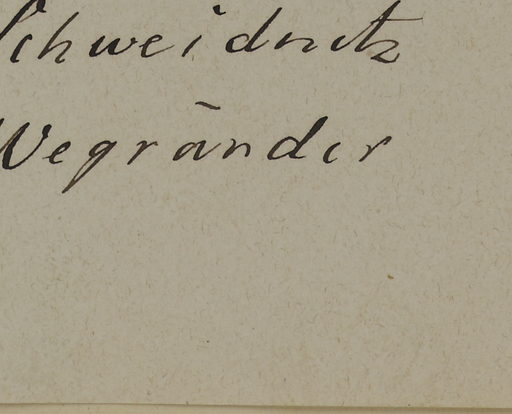 Schweidnitz
Wegränder